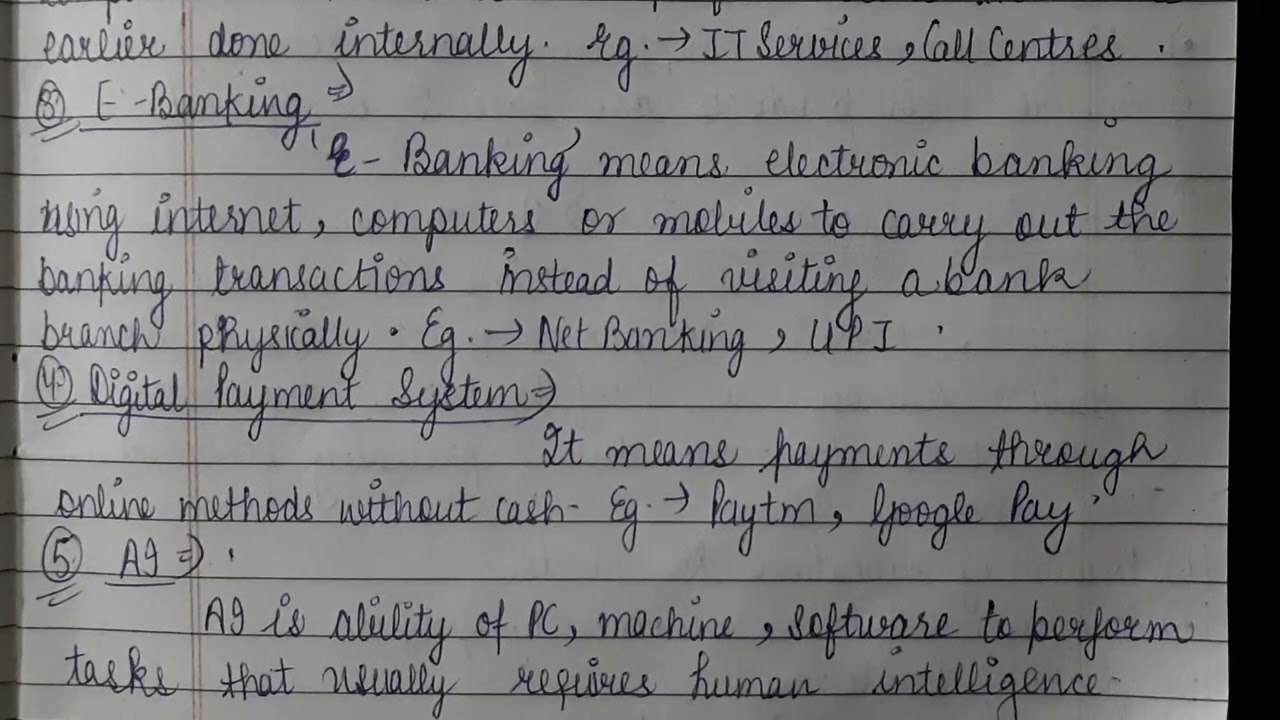 earlier done internally. Eg. → IT Services, Call Centres.
③ E-Banking ⇒
E-Banking means electronic banking
using internet, computers or mobiles to carry out the
banking transactions instead of visiting a bank
branch physically. Eg. → Net Banking, UPI.
④ Digital Payment System ⇒
It means payments through
online methods without cash. Eg. → Paytm, Google Pay.
⑤ AI ⇒
AI is ability of PC, machine, software to perform
tasks that usually requires human intelligence.